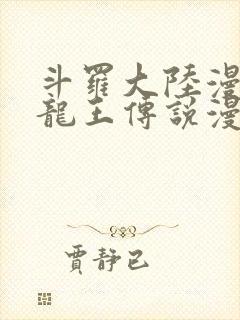 斗羅大陸漫
龍王傳說漫
賈靜已